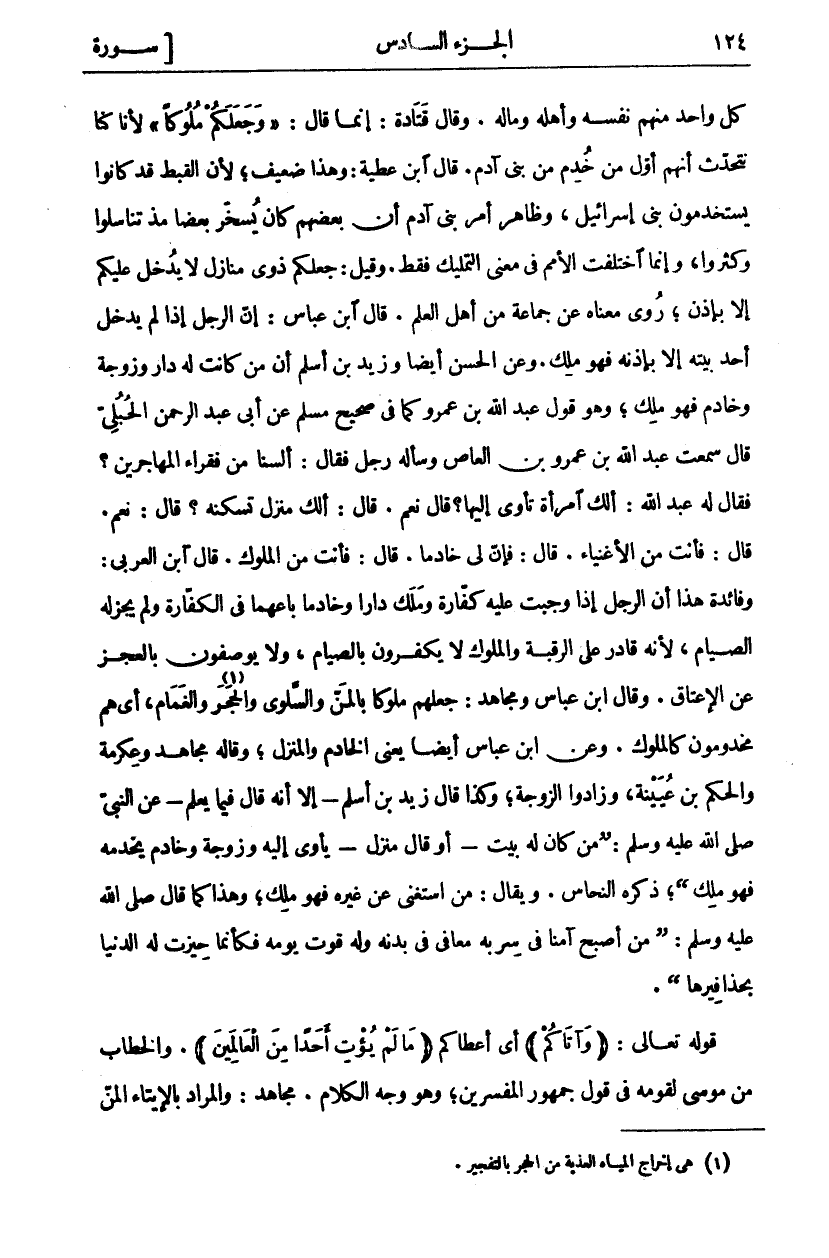 ١٢٤ الجزء السادس [ سورة
كل واحد منهم نفسه وأهله وماله . وقال قَتَادة : إنما قال : « وَجَعَلَكُمْ مُلُوكاً » لأنا كنا
نتحدّث أنهم أوّل من خُدِم من بنى آدم. قال آبن عطية : وهذا ضعيف؛ لأن القبط قد كانوا
يستخدمون بنى إسرائيل ، وظاهر أمر بنى آدم أن بعضهم كان يُسخّر بعضا مذ تناسلوا
وكثروا، وإنما آختلفت الأمم فى معنى التمليك فقط. وقيل : جعلكم ذوى منازل لا يُدخل عليكم
إلا بإذن ؛ رُوى معناه عن جماعة من أهل العلم . قال آبن عباس : إنّ الرجل إذا لم يدخل
أحد بيته إلا بإذنه فهو ملِك. وعن الحسن أيضا وزيد بن أسلم أن من كانت له دار وزوجة
وخادم فهو ملِك ؛ وهو قول عبد الله بن عمرو كما فى صحيح مسلم عن أبى عبد الرحمن الحُبُلِىّ
قال سمعت عبد الله بن عمرو بن العاص وسأله رجل فقال : ألسنا من فقراء المهاجرين ؟
فقال له عبد الله : ألك آمرأة تأوى إليها؟ قال نعم . قال : ألك منزل تسكنه ؟ قال : نعم.
قال : فأنت من الأغنياء . قال : فإنّ لى خادما . قال : فأنت من الملوك . قال آبن العربى :
وفائدة هذا أن الرجل إذا وجبت عليه كفّارة ومَلَك دارا وخادما باعهما فى الكفّارة ولم يجزله
الصيام ، لأنه قادر على الرقبة والملوك لا يكفرون بالصيام ، ولا يوصفون بالعجز
عن الإعتاق . وقال ابن عباس ومجاهد : جعلهم ملوكا بالمَنّ والسَّلوى والحَجَر(١) والغَمَام، أى هم
مخدومون كالملوك . وعن ابن عباس أيضا يعنى الخادم والمنزل ؛ وقاله مجاهد وعِكرمة
والحكم بن عُيَيْنة، وزادوا الزوجة؛ وكذا قال زيد بن أسلم – إلا أنه قال فيما يعلم – عن النبىّ
صلى الله عليه وسلم : ”من كان له بيت – أو قال منزل – يأوى إليه وزوجة وخادم يخدمه
فهو ملِك“؛ ذكره النحاس . ويقال : من استغنى عن غيره فهو ملِك؛ وهذا كما قال صلى الله
عليه وسلم : ” من أصبح آمنا فى سِربه معافى فى بدنه وله قوت يومه فكأنما حِيزت له الدنيا
بحذافِيرها “ .
قوله تعالى : ﴿ وَآتَاكُمْ ﴾ أى أعطاكم ﴿ مَا لَمْ يُؤْتِ أَحَدًا مِنَ الْعَالَمِينَ ﴾ . والخطاب
من موسى لقومه فى قول جمهور المفسرين؛ وهو وجه الكلام . مجاهد : والمراد بالإيتاء المنّ
(١) هى إخراج المياه العذبة من الحجر بالتفجير .